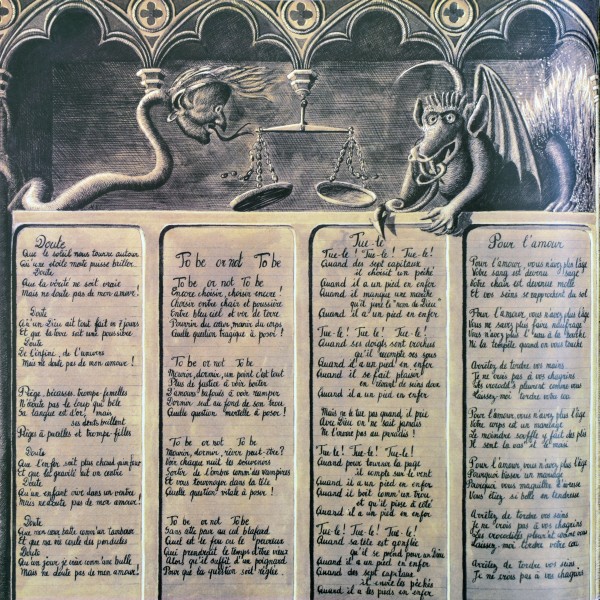 Doute
Que le soleil nous tourne autour
Qu'une étoile morte puisse briller
Doute
Que la vérité ne soit vraie
Mais ne doute pas de mon amour!
Doute
Qu'un Dieu ait tout fait en 7 jours
Et que la terre soit une poussière
Doute
De l'infini, de l'univers
Mais ne doute pas de mon amour!
Piège, bécasses, trompe-femelles
N'écoute pas ce coup qui bêle
Sa langue est d'or, mais
ses dents brillent
Pièges à pucelles et trompe-filles
Doute
Que l'enfer soit plus chaud qu'un four
Et que la gravité ait un centre
Doute
Qu'un enfant vive dans un ventre
Mais ne doute pas de mon amour!
Doute
Que mon cœur batte comme un tambour
Et que ma vie coule des pendules
Doute
Qu'un jour, je crève comme une bulle
Mais ne doute pas de mon amour!
To be or not To be
To be or not To be
Encore choisir, choisir encore!
Choisir entre chair et poussière
Entre bleu ciel et ver de terre
Pourrir du cœur, mourir du corps
Quelle question tragique à poser!
To be or not To be
Mourir, dormir, un point c'est tout
Plus de justice à voir boiter
D'amour bafoués à voir ramper
Dormir sud au fond de son trou
Quelle question mortelle à poser!
To be or not To be
Mourir, dormir, rêver peut-être?
Voir chaque nuit les souvenirs
Sortir de l'ombre comme des vampires
Et vous vendanger dans la tête
Quelle question vitale à poser!
To be or not To be
Sans être pair au ciel blafard
Quel est le feu ou le parvenu
Qui prendrait le temps d'être vieux
Alors qu'il suffit d'un poignard
Pour que la question soit réglée
Tue-le
Tue-le! Tue-le! Tue-le!
Quand des sept capitaux
il choisit un péché
Quand il a un pied en enfer
Quand il manque une marche
qu'il jure le "nom de Dieu"
Quand il a un pied en enfer
Tue-le! Tue-le! Tue-le!
Quand ses doigts sont crochus
qu'il recompte ses sous
Quand il a un pied en enfer
Quand il se fait plaisir
en rêvant de seins doux
Quand il a un pied en enfer
Mais ne le tue pas quand il prie
Avec Dieu on ne sait jamais
Ne l'envoie pas au paradis!
Tue-le! Tue-le! Tue-le!
Quand pour tourner la page
il compte sur le vent
Quand il a un pied en enfer
Quand il boit comme un trou
et qu'il pisse à côté
Quand il a un pied en enfer
Tue-le! Tue-le! Tue-le!
Quand sa tête est gonflée
qu'il se prend pour un Dieu
Quand il a un pied en enfer
Quand des sept capitaux
il envie les péchés
Quand il a les pieds en enfer
Pour l'amour
Pour l'amour, vous n'avez plus l'âge
Votre sang est devenu sage
Votre chair est devenue molle
Et vos seins se rapprochent du sol
Pour l'amour, vous n'avez plus l'âge
Vous ne savez plus faire naufrage
Vous n'avez plus l'eau à la bouche
Ni la tempête quand on vous touche
Arrêtez de tordre vos mains
Je ne crois pas à vos chagrins
Les crocodiles pleurent comme vous
Laissez-moi tordre votre cou
Pour l'amour, vous n'avez plus l'âge
Votre corps est un marécage
Le moindre souffle y fait des plis
Pour l'amour vous n'avez plus l'âge
Pourquoi blesser un mariage
Pourquoi, vous maquiller d'ivresse
Vous étiez si belle en tendresse
Arrêtez de tordre vos mains
Je ne crois pas à vos chagrins
Les crocodiles pleurent comme vous
Laissez-moi tordre votre cou
Arrêtez de tordre vos seins
Je ne crois pas à vos chagrins